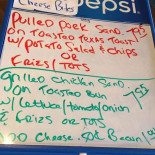 Cheese Bites
Pepsi
Pulled Pork Sand.
on Toasted Texas Toast
w/ Potato Salad & Chips
OR
Fries/Tots
Grilled Chicken Sand.
on Toasted
w/ Lettuce/tomato/onion
& fries or tots
Cheese Bacon